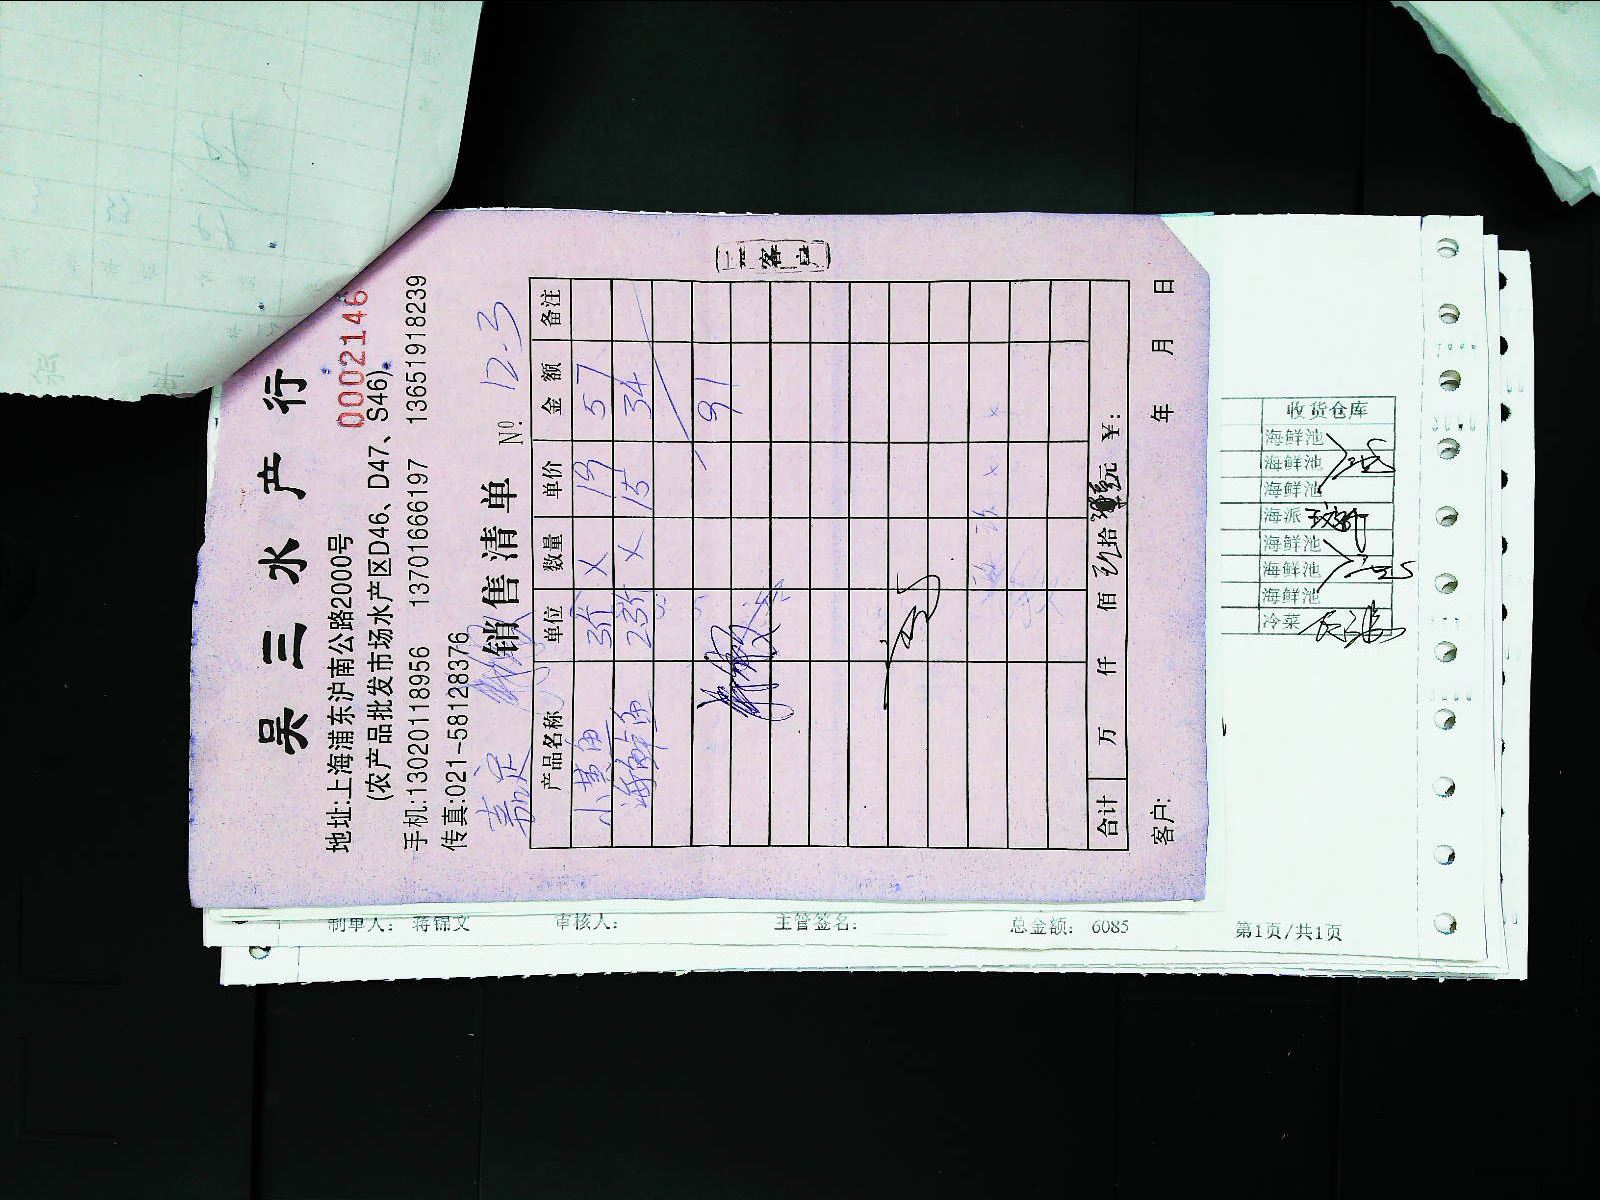 吴三水产行
0002146
地址:上海浦东沪南公路2000号
(农产品批发市场水产区D46、D47、S46)
手机:13020118956 13701666197 13651918239
传真:021-58128376
销售清单 № 12-3
产品名称 单位 数量 单价 金额 备注
小黄鱼 3斤 × 19 57
海鲜 15 34
91
合计 万 仟 佰 玖拾 元 ¥:
客户: 年 月 日
二客户
收货仓库
海鲜池
海鲜池
海鲜池
海派
海鲜池
海鲜池
海鲜池
冷菜
制单人: 蒋锦文 审核人: 主管签名: 总金额: 6085 第1页/共1页